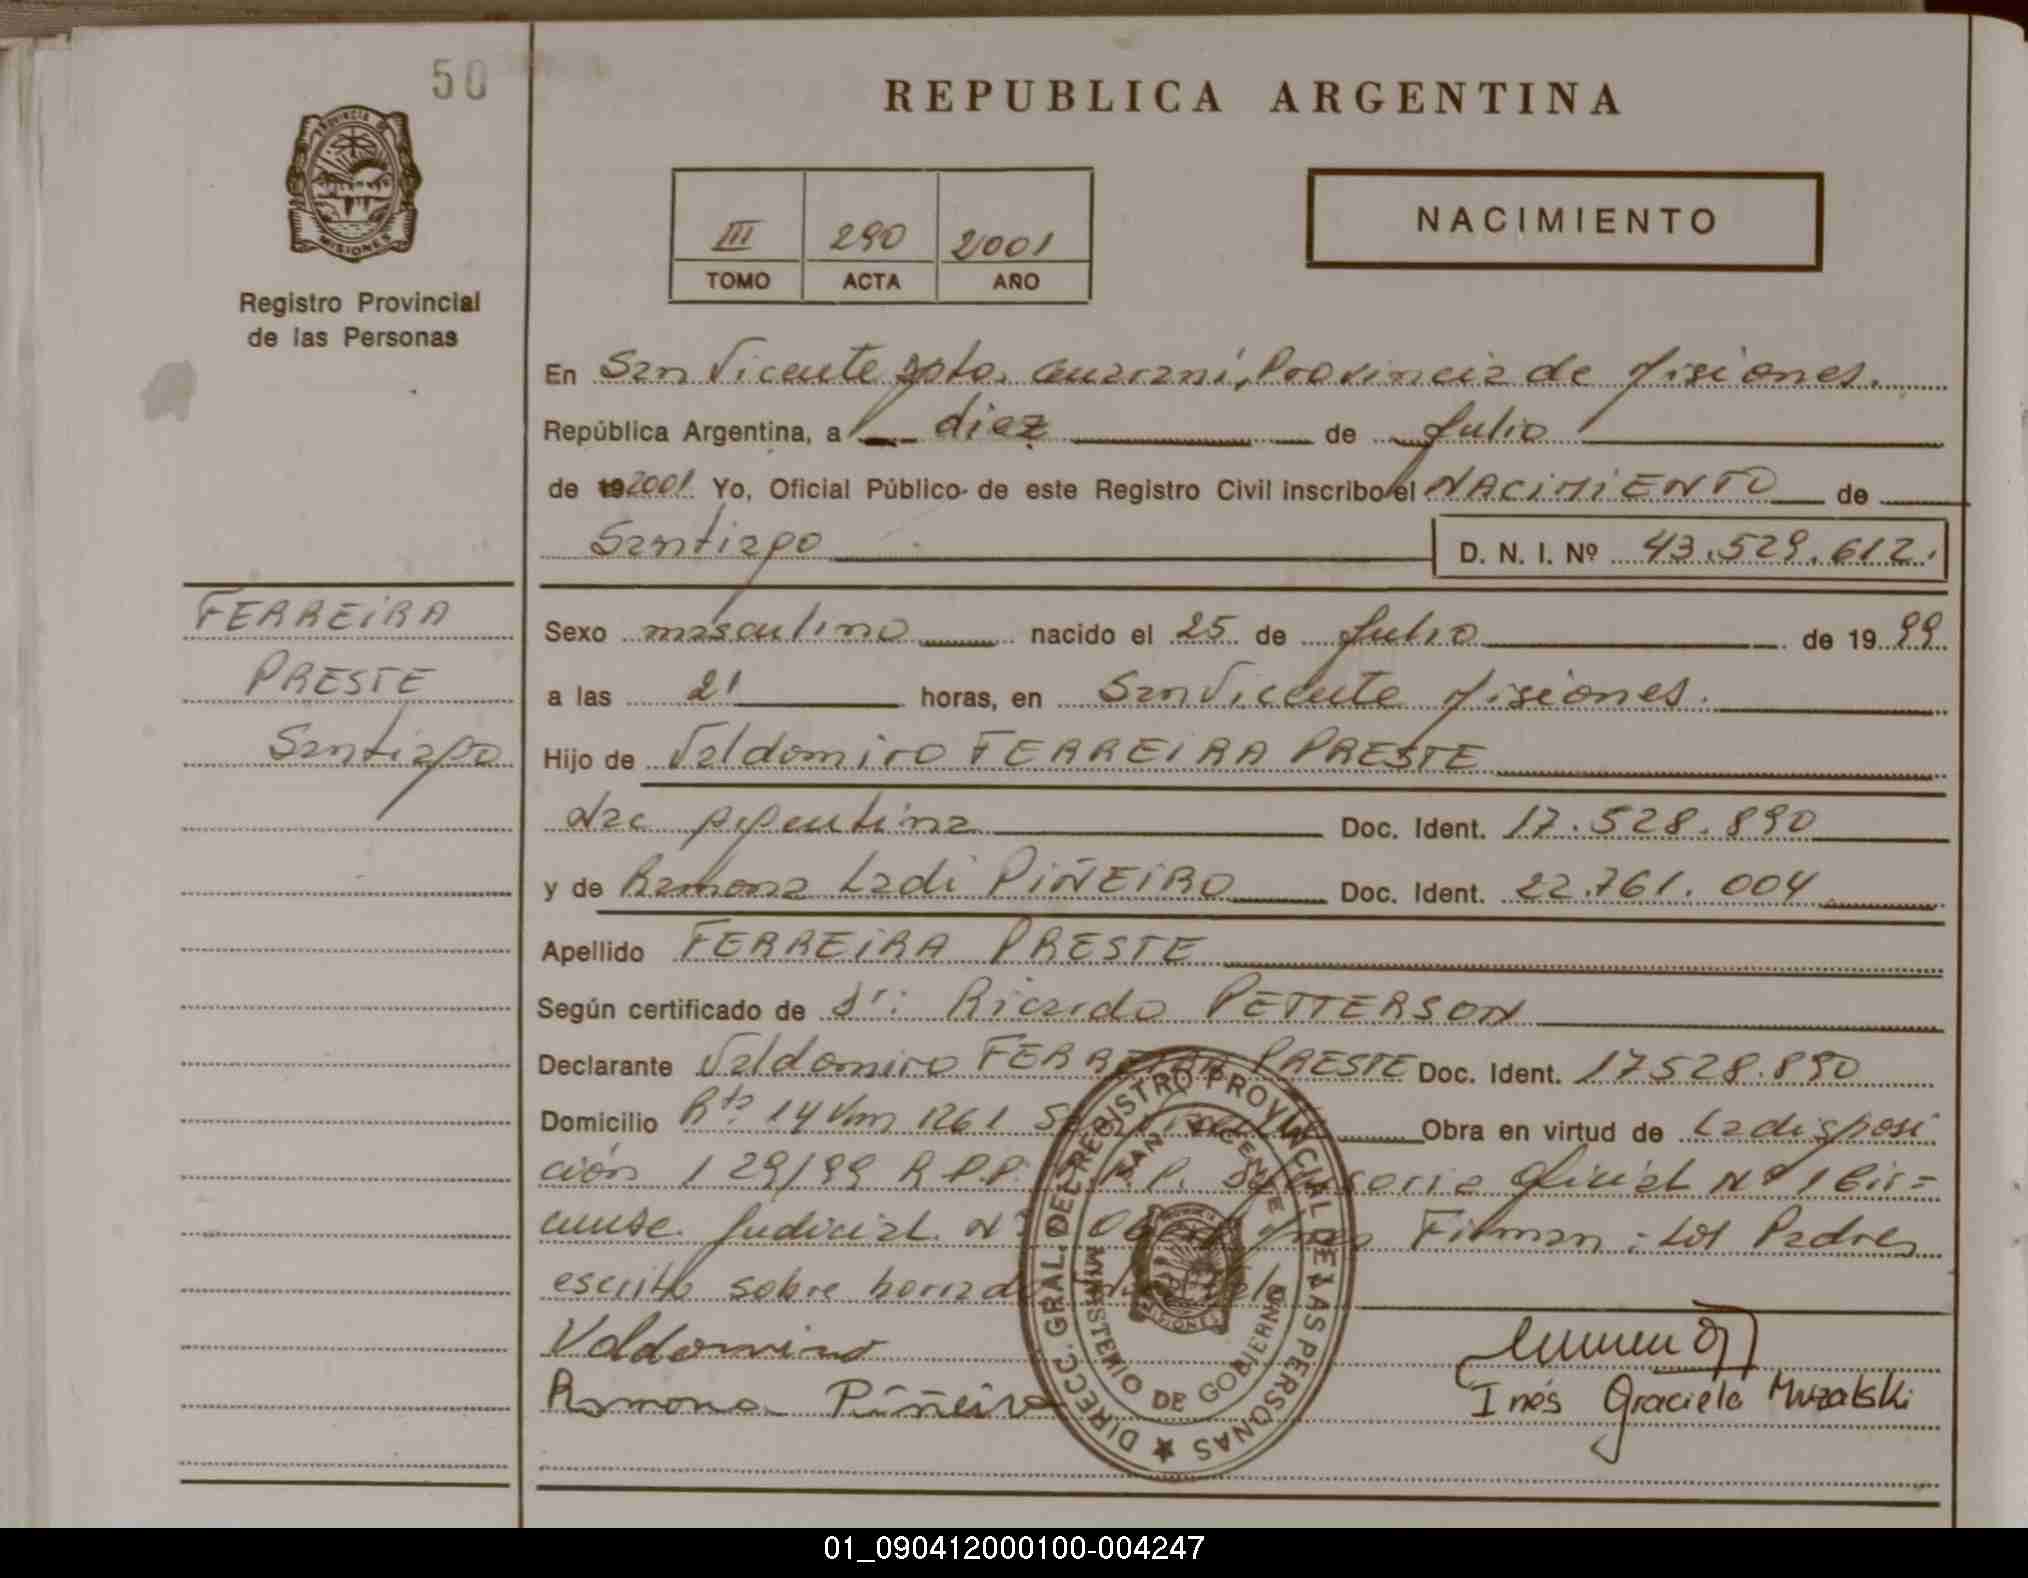 50
REPUBLICA ARGENTINA
PROVINCIA DE
MISIONES
Registro Provincial
de las Personas
III 290 2001
TOMO ACTA AÑO
NACIMIENTO
En San Vicente Dpto. Guaraní, Provincia de Misiones.
República Argentina, a diez de Julio
de 19 2001 Yo, Oficial Público de este Registro Civil inscribo el NACIMIENTO de
Santiago D. N. I. Nº 43.529.612.
FERREIRA
PRESTE
Santiago
Sexo masculino nacido el 25 de Julio de 19 99
a las 21 horas, en San Vicente Misiones.
Hijo de Valdomiro FERREIRA PRESTE
Nac Argentina Doc. Ident. 17.528.890
y de Ramona Ladi PIÑEIRO Doc. Ident. 22.761.004
Apellido FERREIRA PRESTE
Según certificado de Dr: Ricardo PETTERSON
Declarante Valdomiro FERREIRA PRESTE Doc. Ident. 17528.890
Domicilio Rta 14 Km 1261 San Vicente Obra en virtud de La disposi
ción 129/99 R.P.P. Defensoria Oficial Nº 1 Cir=
cunsc. Judicial Nº Firman: Los Padres
escrito sobre borrado
Valdomiro
Ramona Piñeiro
Inés Graciela Muzalski
DIRECC. GRAL. DEL REGISTRO PROVINCIAL DE LAS PERSONAS
SAN VICENTE
MINISTERIO DE GOBIERNO
MISIONES
01_090412000100-004247